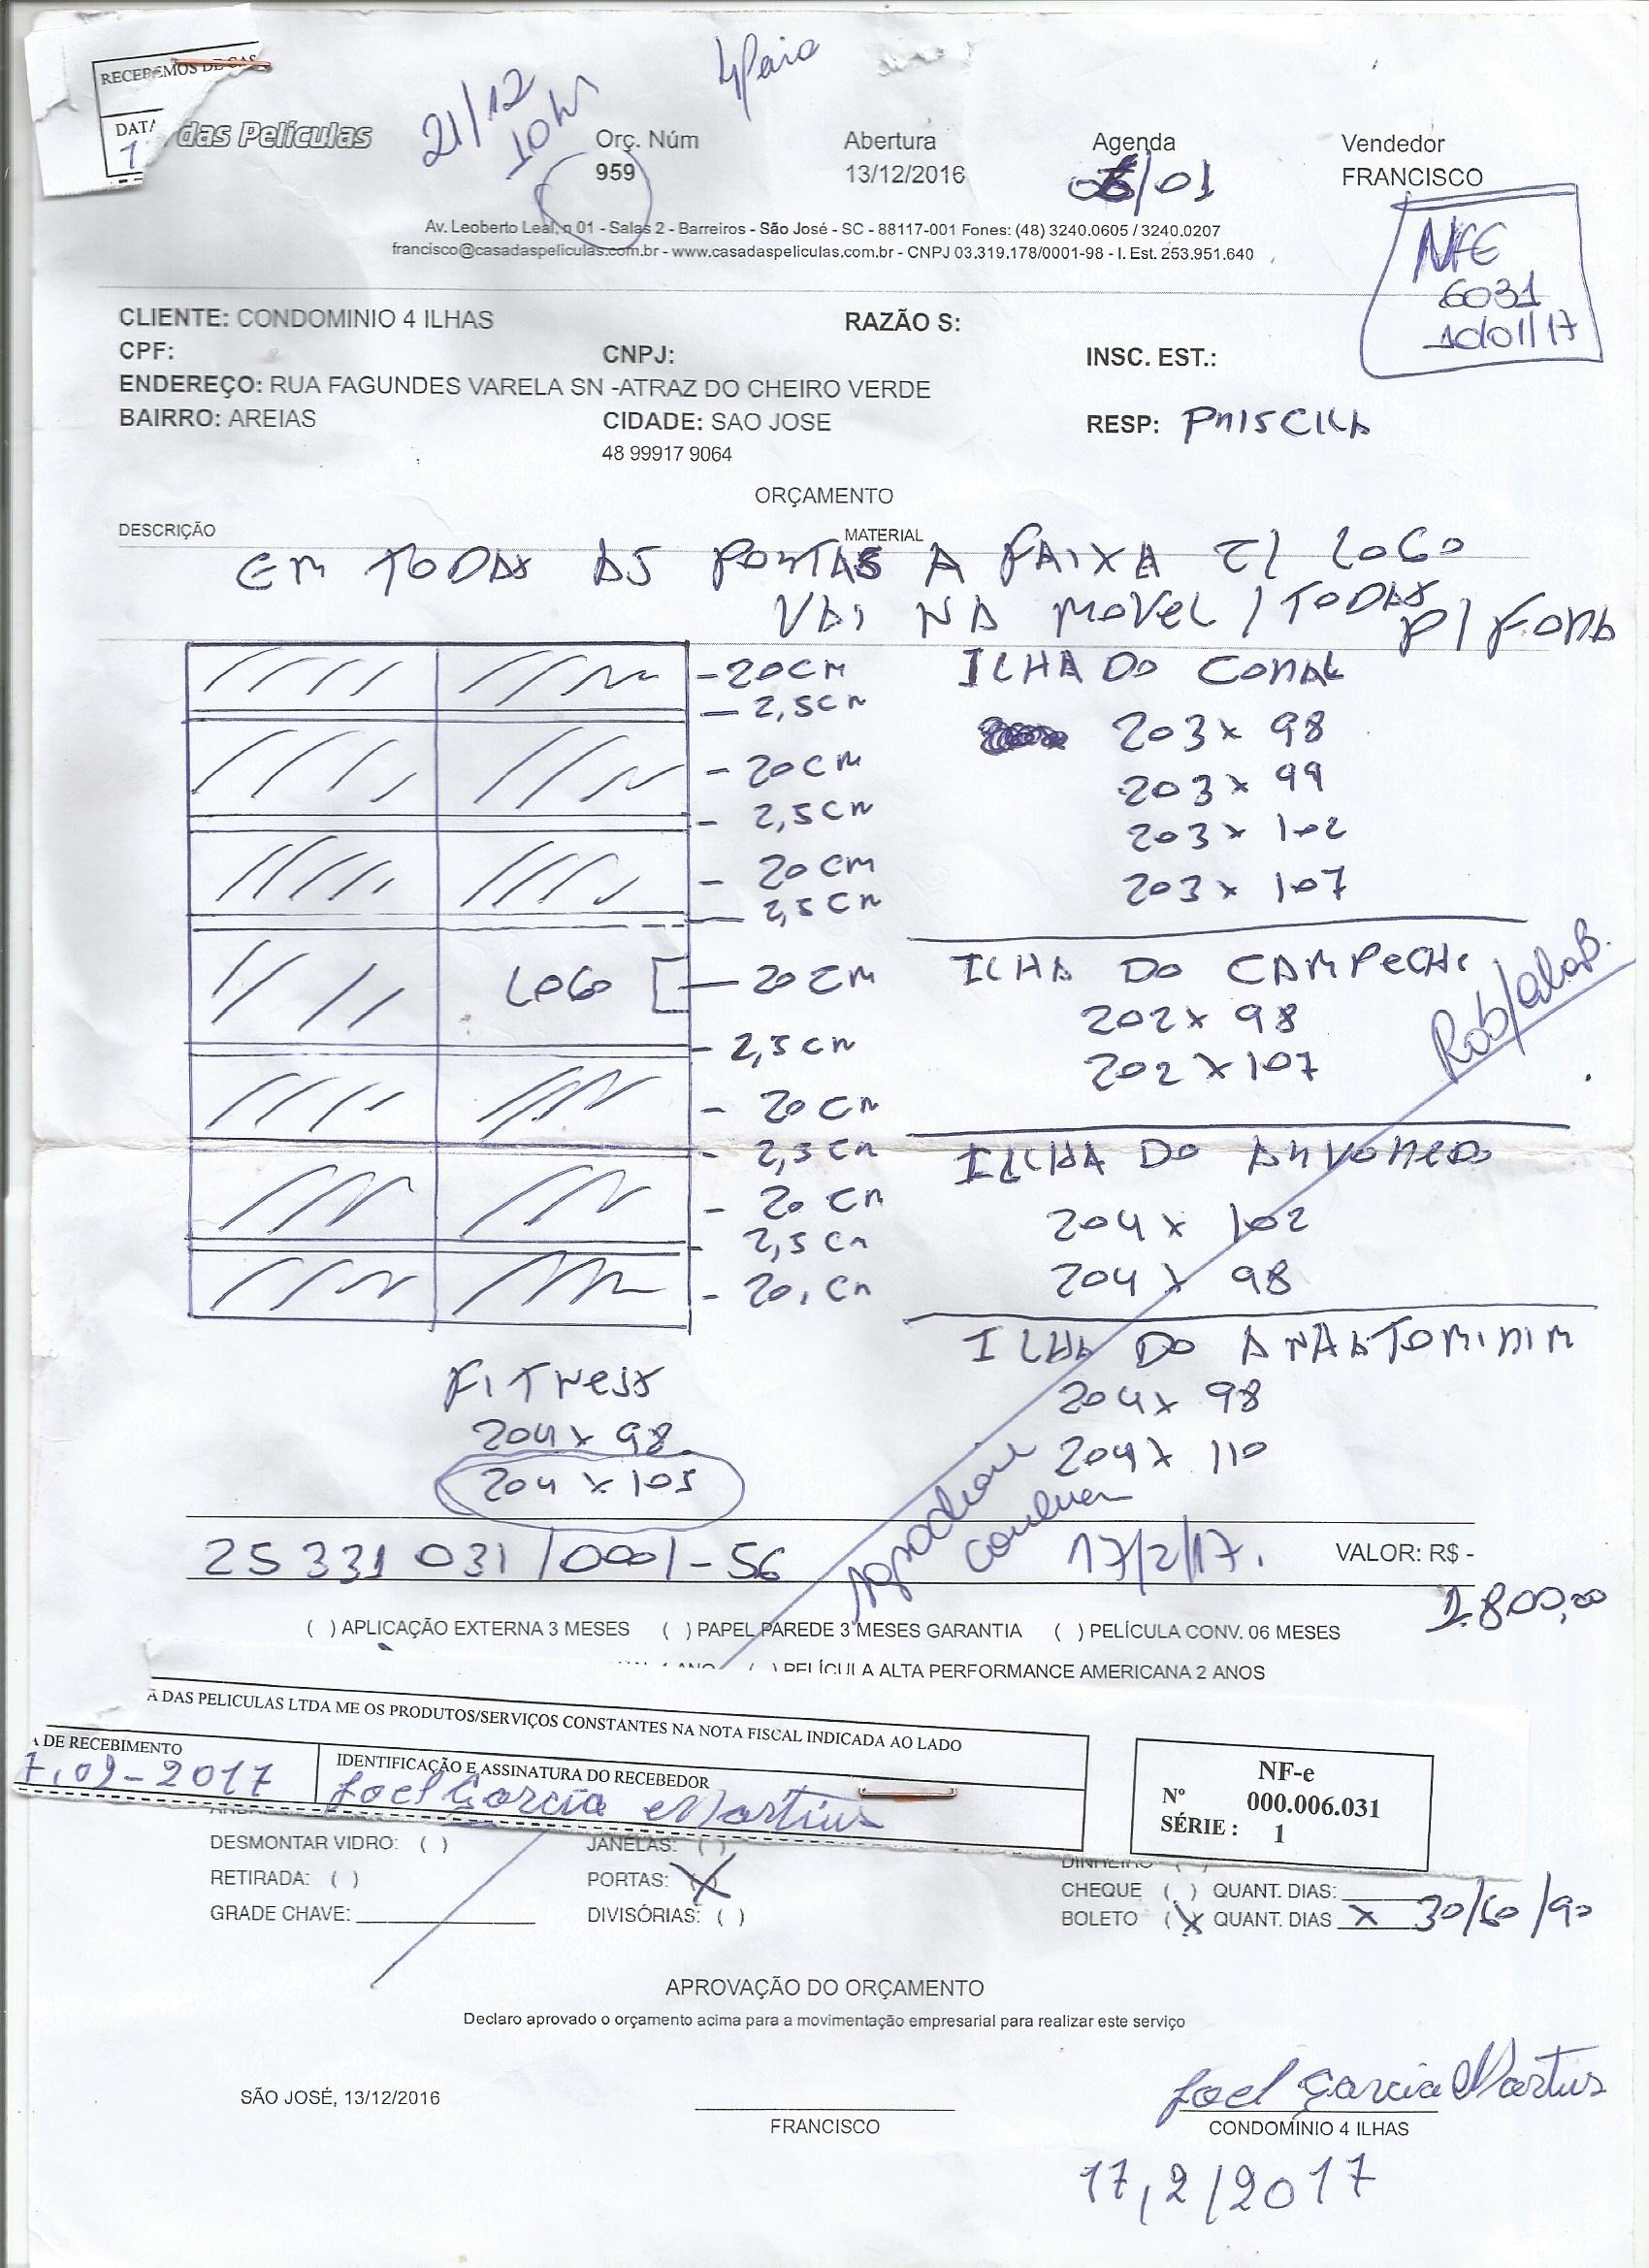 RECEBEMOS DE CAS
DATA
1
das Películas
21/12
10hs
Orç. Núm
959
Abertura
13/12/2016
Agenda
/01
Vendedor
FRANCISCO
Av. Leoberto Leal, n 01 - Salas 2 - Barreiros - São José - SC - 88117-001 Fones: (48) 3240.0605 / 3240.0207
francisco@casadaspeliculas.com.br - www.casadaspeliculas.com.br - CNPJ 03.319.178/0001-98 - I. Est. 253.951.640
NFE
6031
10/01/17
CLIENTE: CONDOMINIO 4 ILHAS
RAZÃO S:
CPF:
CNPJ:
INSC. EST.:
ENDEREÇO: RUA FAGUNDES VARELA SN -ATRAZ DO CHEIRO VERDE
BAIRRO: AREIAS
CIDADE: SAO JOSE
RESP: PRISCILA
48 99917 9064
ORÇAMENTO
DESCRIÇÃO
MATERIAL
EM TODAS AS PORTAS A FAIXA C/ LOGO
VAI NA MOVEL / TODAS P/ FORA
-20CM
- 2,5CM
- 20CM
- 2,5CM
- 20CM
- 2,5CM
LOGO
- 20CM
- 2,5CM
- 20CM
- 2,5CM
- 20CM
- 2,5CM
- 20.CM
ILHA DO CORAL
203 x 98
203 x 99
203 x 102
203 x 107
ILHA DO CAMPECHE
202 x 98
202 x 107
ILHA DO ARVOREDO
204 x 102
204 x 98
ILHA DO ANHATOMIRIM
204 x 98
204 x 110
FITNESS
204 x 98
204 x 105
25 331 031/0001-56
17/2/17.
VALOR: R$ -
1.800,00
( ) APLICAÇÃO EXTERNA 3 MESES ( ) PAPEL PAREDE 3 MESES GARANTIA ( ) PELÍCULA CONV. 06 MESES
1 ANO ( ) PELÍCULA ALTA PERFORMANCE AMERICANA 2 ANOS
A DAS PELICULAS LTDA ME OS PRODUTOS/SERVIÇOS CONSTANTES NA NOTA FISCAL INDICADA AO LADO
A DE RECEBIMENTO
7.02-2017
IDENTIFICAÇÃO E ASSINATURA DO RECEBEDOR
Joel Garcia Martins
NF-e
Nº 000.006.031
SÉRIE : 1
DESMONTAR VIDRO: ( )
JANELAS: ( )
DINHEIRO ( )
RETIRADA: ( )
PORTAS: (X)
CHEQUE ( ) QUANT. DIAS:
GRADE CHAVE:
DIVISÓRIAS: ( )
BOLETO (X) QUANT. DIAS X 30/60/90
APROVAÇÃO DO ORÇAMENTO
Declaro aprovado o orçamento acima para a movimentação empresarial para realizar este serviço
SÃO JOSÉ, 13/12/2016
FRANCISCO
Joel Garcia Martins
CONDOMÍNIO 4 ILHAS
17/2/2017